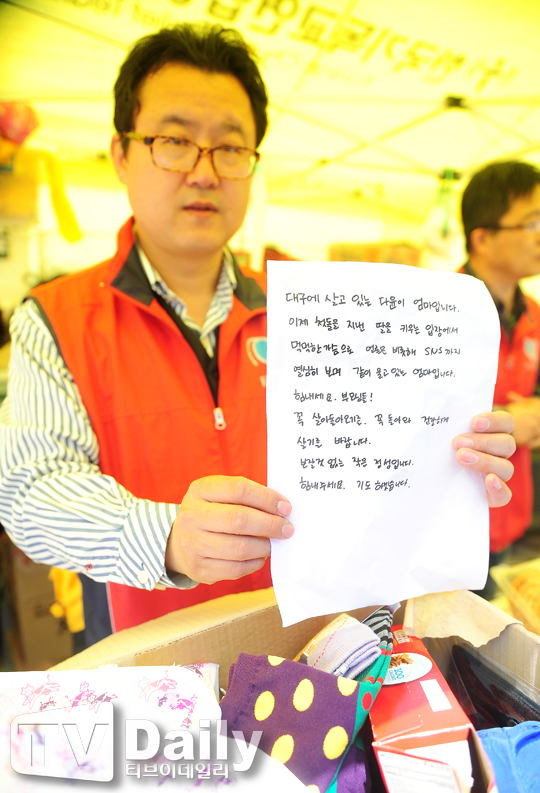 대구에 살고 있는 다윤이 엄마입니다.
이제 첫돌을 지낸 딸을 키우는 입장에서
먹먹한 마음으로 언론은 비롯해 SNS까지
열심히 보며 같이 울고있는 엄마입니다.
힘내세요. 부모님들!
꼭 살아돌아오기를. 꼭 돌아와 건강하게
살기를 바랍니다.
보잘것 없는 작은 정성입니다.
힘내주세요. 기도 하겠습니다.
TV Daily
티브이데일리